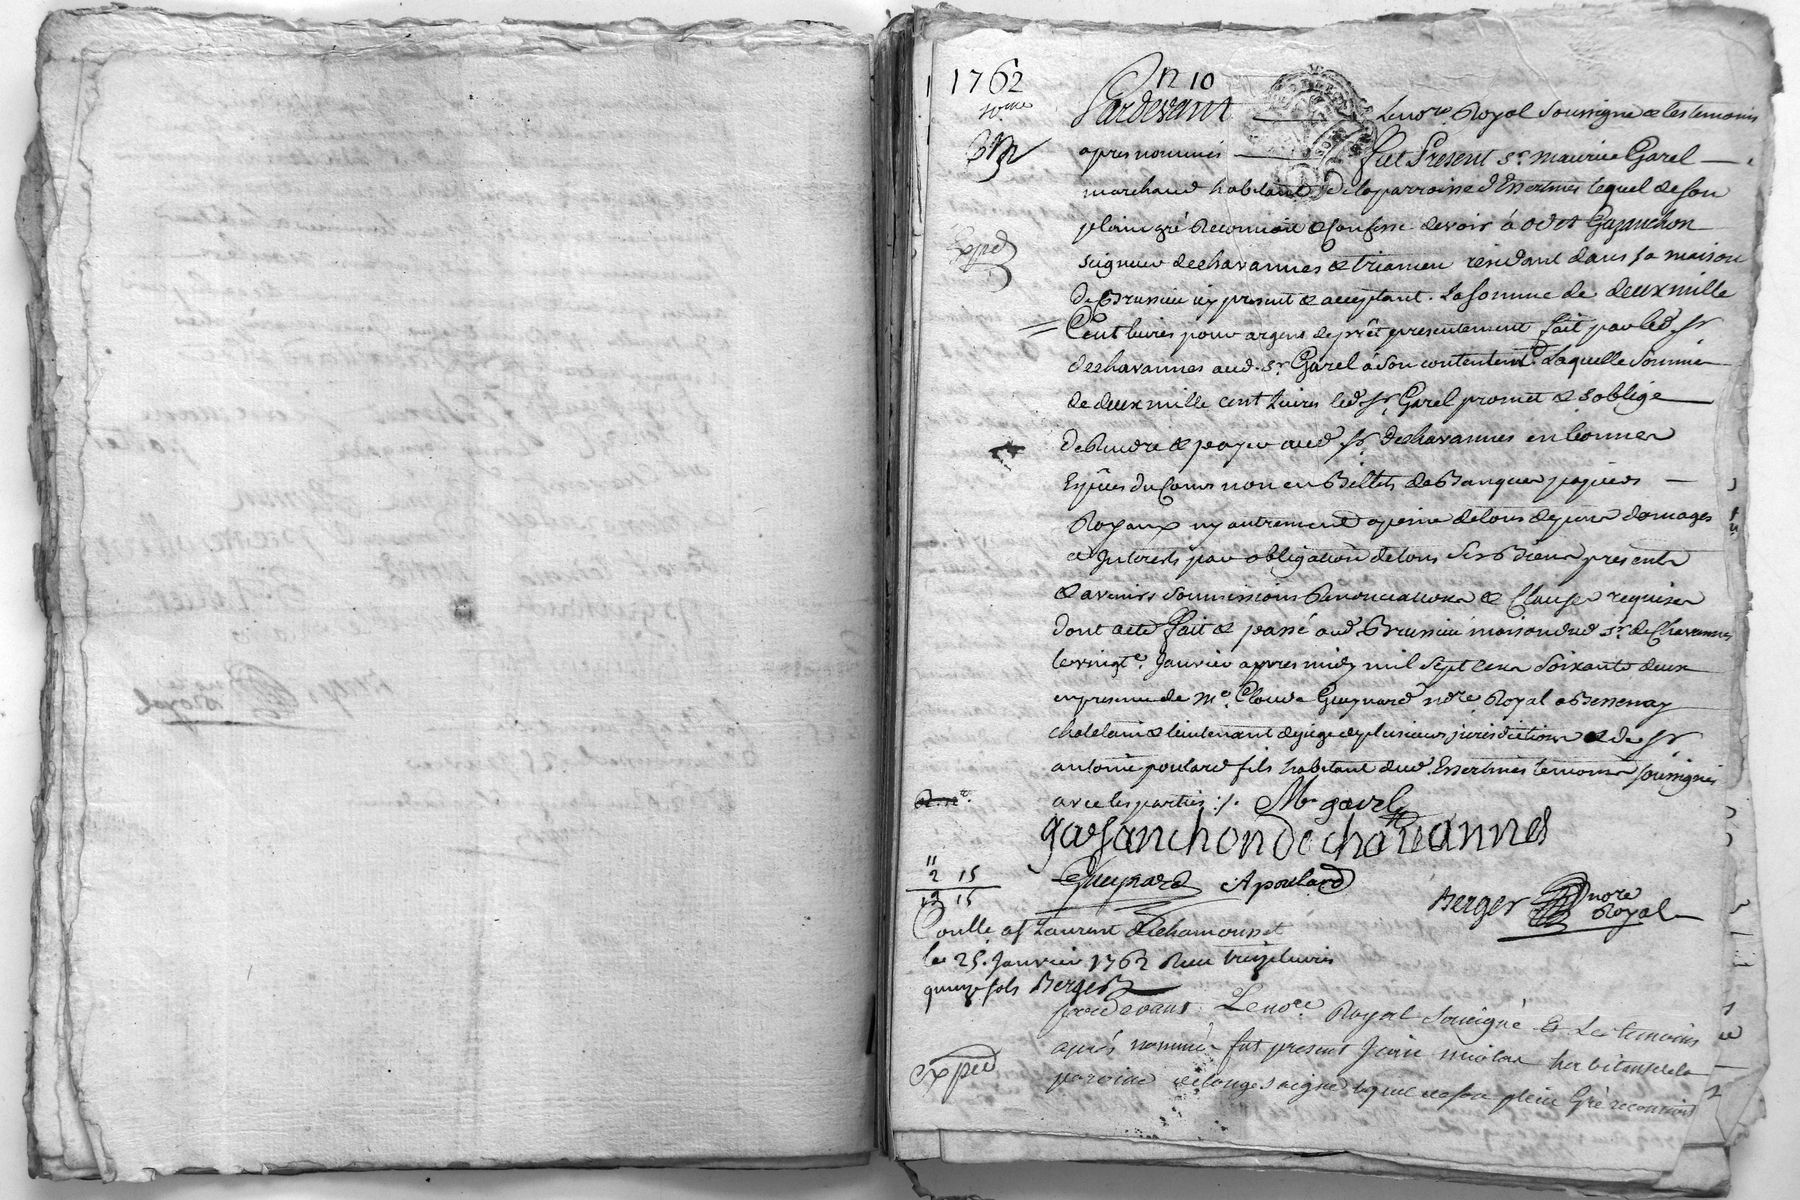 1762
N 10
Pardevant Le no.re Royal Soussigné & les temoins
apres nommés fut Present Sr. maurice Garel
marchand habitant de la parroisse d'Essertines lequel de son
plein gré Reconnoit & confesse devoir à odet Gazanchon
seigneur de chavannes & triamen residant dans sa maison
de Brussieu icy present & acceptant. La somme de deux mille
Cent livres pour argent de prêt presentement fait par led. sr
de chavannes aud. sr. Garel à son contentemt. Laquelle Somme
de deux mille cent Livres led. sr. Garel promet & soblige
de Rendre & payer aud. sr. de chavannes en bonnes
Espèces du Cours non en Billets de Banque papiers
Royaux ny autrement a peine de tous depens domages
& Interests par obligation de tous ses Biens presents
& avenirs soumissions Renonciations & Clauses requises
dont acte fait & passé aud. Brussieu maison dud. sr. de Chavannes
le vingte. Janvier apres midy mil sept cens soixante deux
en presence de Me. Claude Guynard nore. Royal a Bessenay
chatelain & lieutenant de juge de plusieurs jurisdictions & de sr
antoine poulard fils habitant aud. Essertines temoins soussignés
avec les parties ./. M garel
gazanchon de chavannes
Guynard A poulard
Berger nore Royal
11
2 15
13 15
Conllé a st Laurent de chamousset
le 25. Janvier 1762 Reçu treize livres
quinze sols Berger
pardevant Le nore. Royal Souigné & Les temoins
après nommés fut present habitant de la
paroisse de longesaigne lequel de son plein Gré reconnoit
expéd